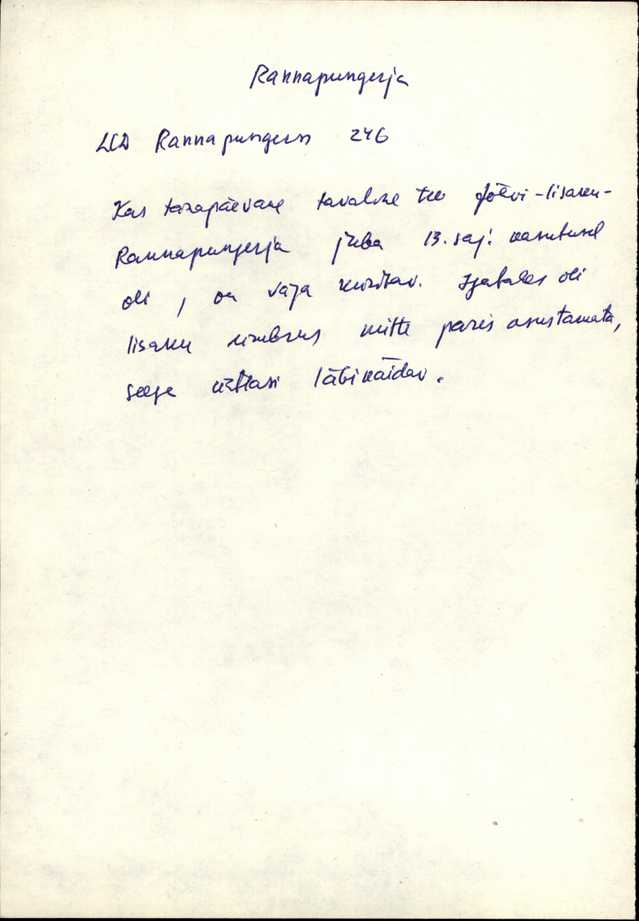 Rannapungerja
LCD Rannapungern 246
Kas tänapäevane tavaline tee Jõhvi-Iisaku-
Rannapungerja juba 13. saj. kasutusel
oli, on väga küsitav. Igatahes oli
Iisaku ümbrus mitte päris asustamata,
seega läbikäidav.